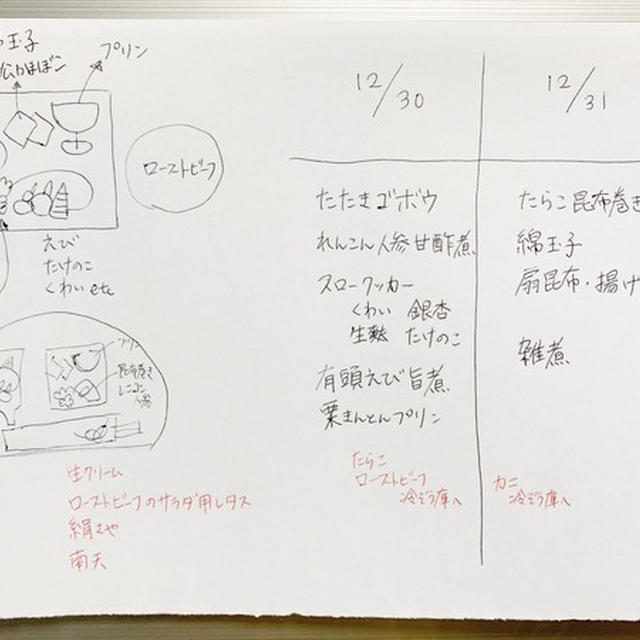 玉子
松かまぼこ
プリン
ローストビーフ
えび
たけのこ
くわい etc
プリン
昆布巻き
レンコン
人参
生クリーム
ローストビーフのサラダ用レタス
絹さや
南天
12/30
たたきゴボウ
れんこん人参甘酢煮
スロークッカー
くわい 銀杏
生麩 たけのこ
有頭えび旨煮
栗きんとんプリン
たらこ
ローストビーフ
冷ぞう庫へ
12/31
たらこ昆布巻き
綿玉子
扇昆布・揚げ
雑煮
カニ
冷ぞう庫へ